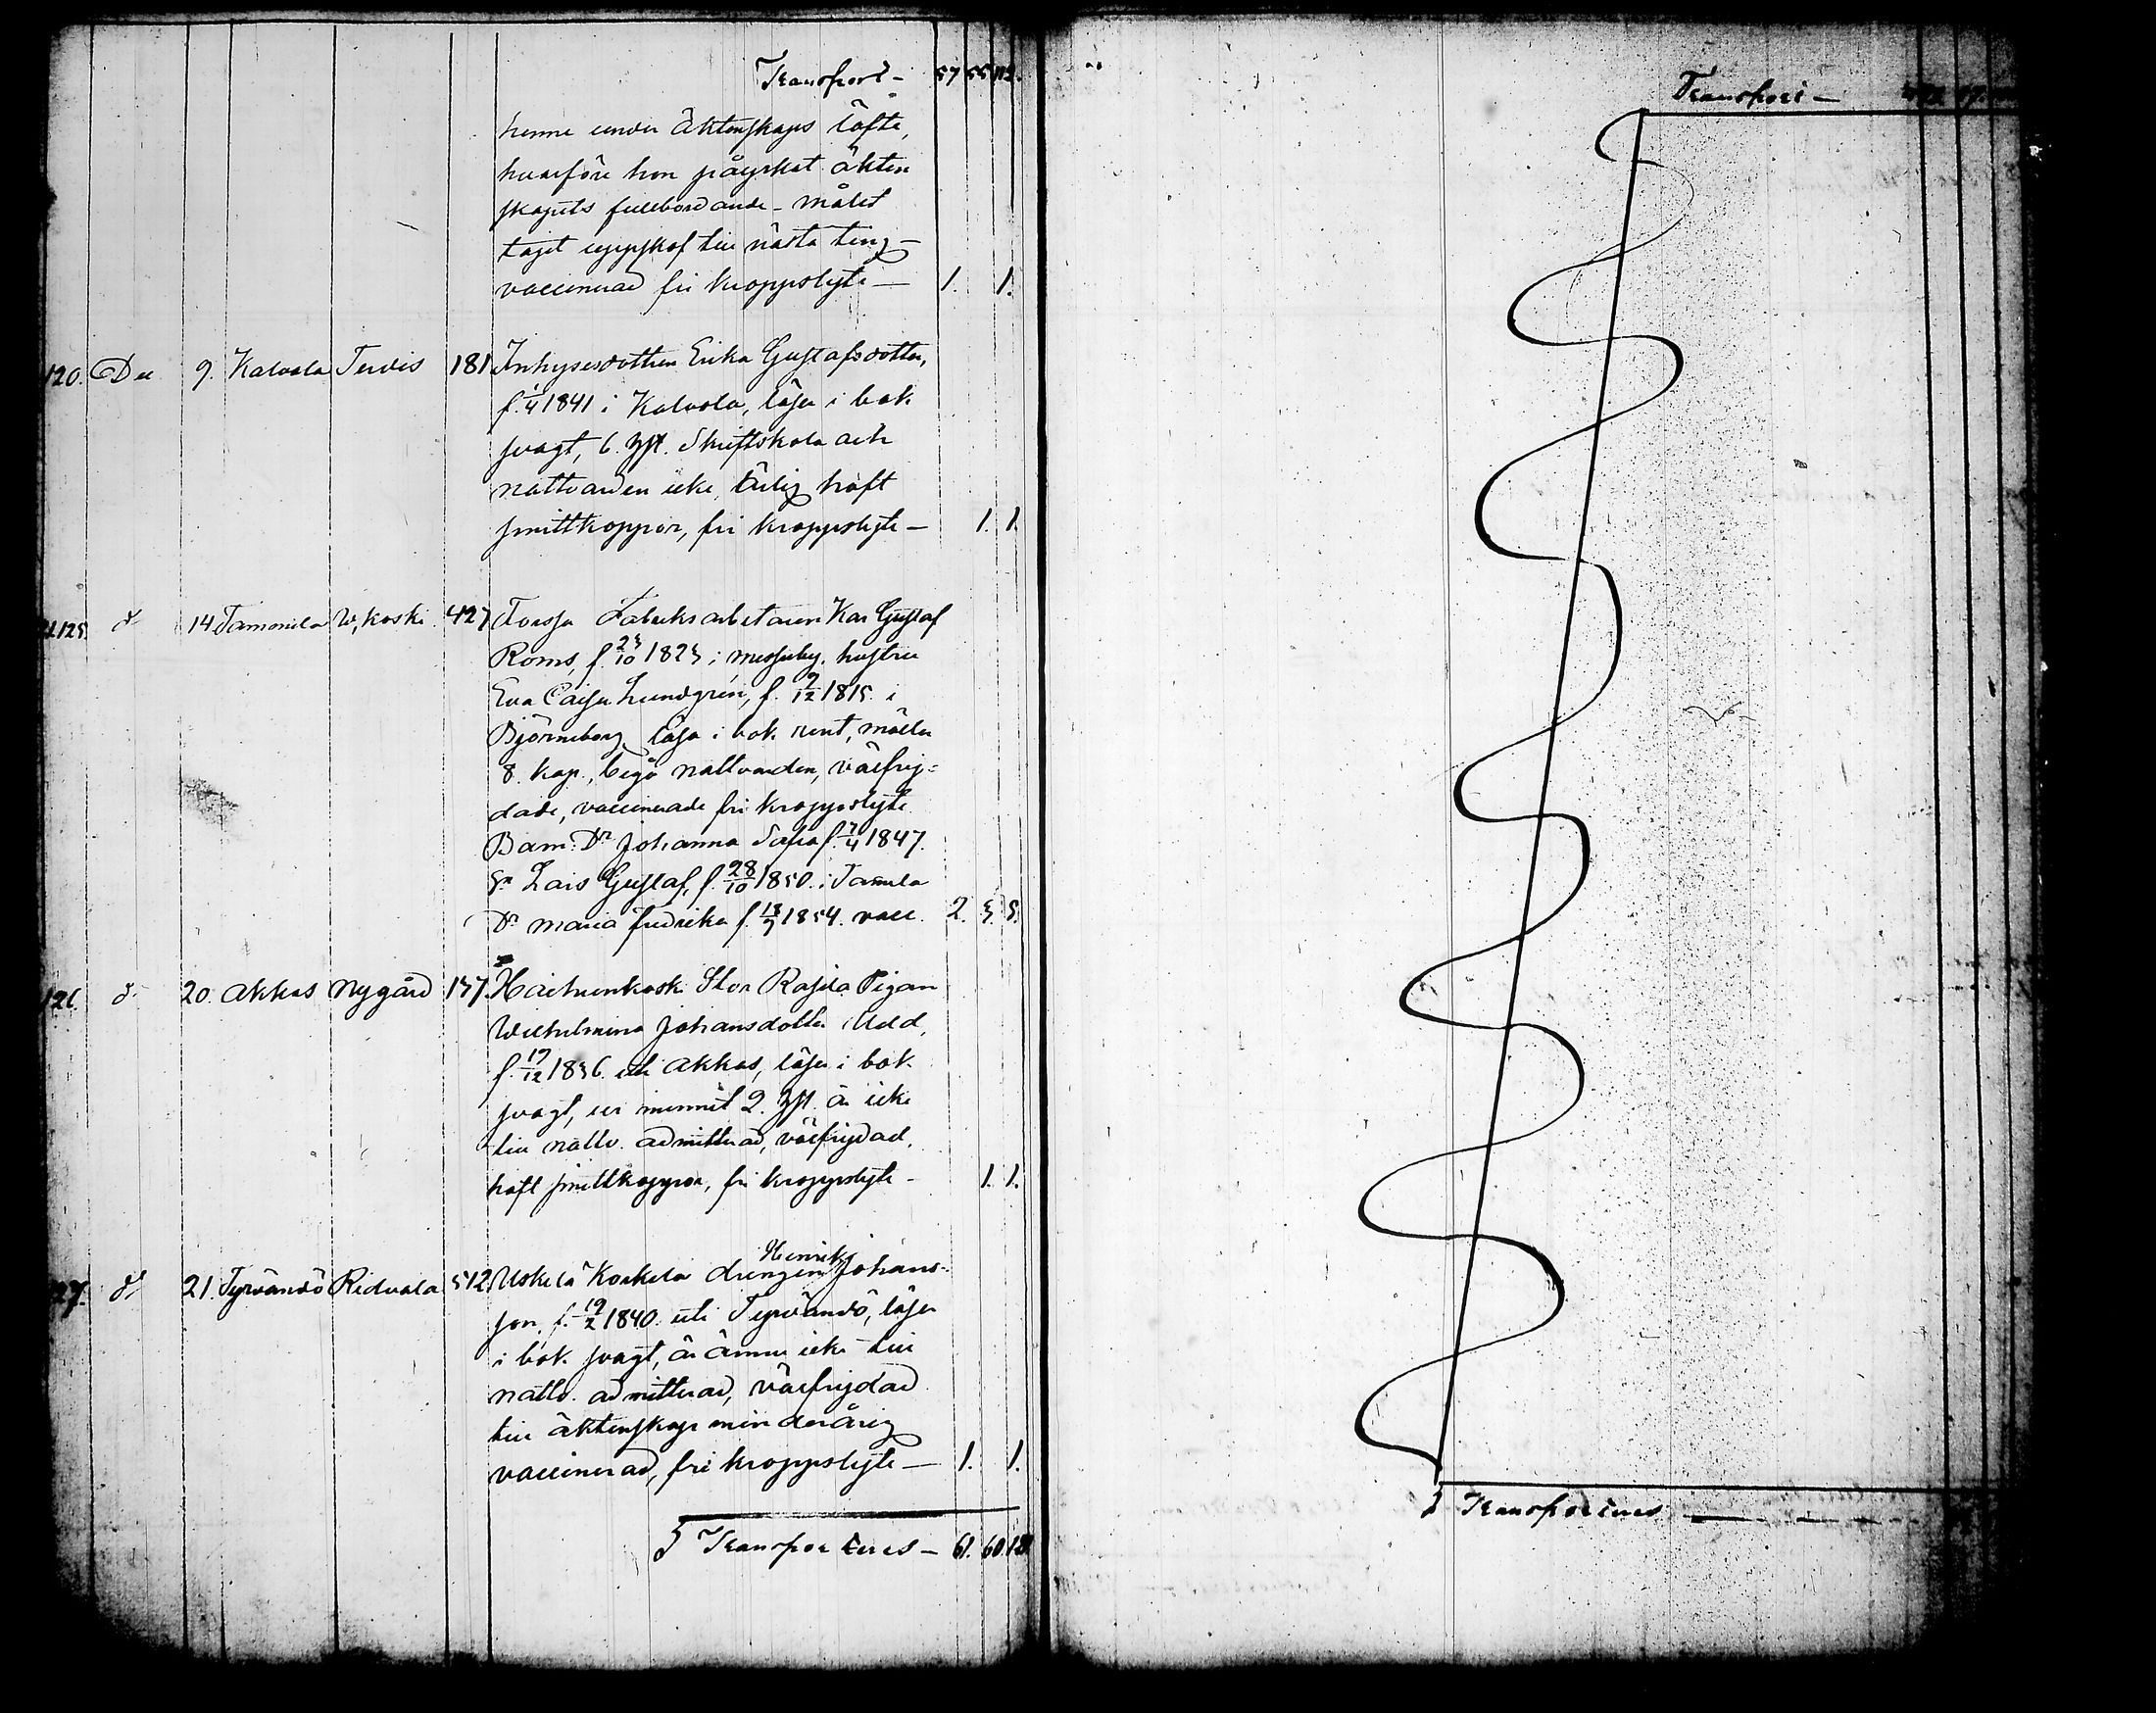 Transport - 57 55 112.
henne under Äktenskaps löfte,
hvarföre hon påyrkat äkten
skapets fullbordande - målet
taget uppskof till nästa ting -
vaccinerad fri kroppslyte — 1. 1.
120. Dec 9. Kalvola Tervis 181 Inhysesdottren Erika Gustafsdotter,
f. 1/4 1841 i Kalvola, läser i bok
svagt, 6. Hst. Skriftskola och
nattvarden icke, haft
smittkoppor, fri kroppslyte - 1. 1.
d° 14 Tammela W, koski 427 Forssa Fabriksarbetaren Karl Gustaf
Roms, f. 23/10 1823 i Messuby. hustru
Eva Caisa Lundgrén, f. 9/12 1815. i
Björneborg, läsa i bok rent, måtta
8. kap., begå nattvarden, välfrej=
dade, vaccinerade fri kroppslyte
Barn: Dr Johanna Sofia f. 7/4 1847.
Sn Lars Gustaf, f. 28/10 1850. i Tam̄ela
Dr Maria Fredrika f. 13/9 1854. vacc. 2. 3. 5.
126. d° 20. Akkas Nygård 157. Stor Rasila Pigan
Wilhelmina Johansdotter Udd,
f. 19/12 1836. uti Akkas, läser i bok
svagt, ur minnet 2. Hst. är icke
till nattv. admitterad, välfrejdad,
haft smittkoppor, fri kroppslyte - 1. 1.
27. d° 21. Tyrvändö Ridvala 512 Uskela Koskela drengen Henrik Johans-
son, f. 19/2 1840. uti Tyrvändö, läser
i bok svagt, är ännu icke till
nattv. admitterad, välfrejdad
till äktenskap minderårig
vaccinerad, fri kroppslyte — 1. 1.
Transporteras - 61. 60. 121
Transport -
Transporteras